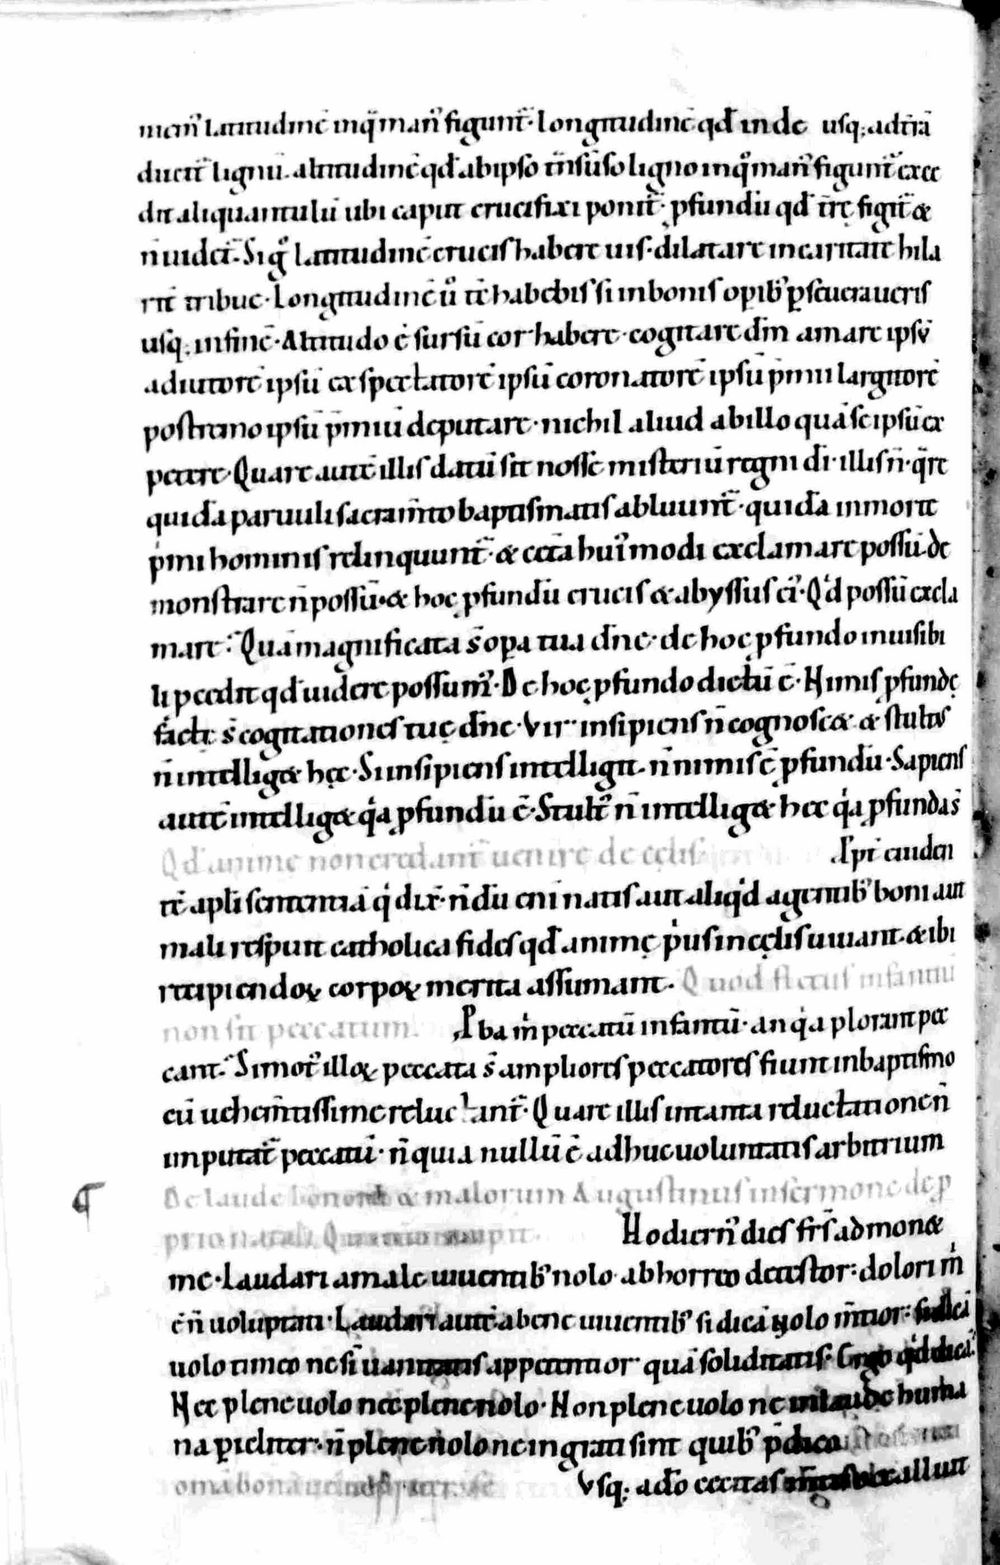 men᷒ latitudinē inq̄ man᷒ figunt᷒. longitudinē qd̄ inde usq; ad t̄rā
ducit᷒ lignū. altitudinē qd̄ ab ipso t̄nsūso ligno inq̊ man᷒ figunt᷒ exce
dit aliquantulū ubi caput crucifixi ponit᷒. ꝓfundū qd̄ t̄rę figit᷒ &
n̄ uidet᷒. Sigͦ latitudinē crucis habere uis. dilatare in caritate hila
rit̄ tribue. Longitudinē ů tē habebis si in bonis opib᷒ ꝑseueraueris
usq; in finē. Altitudo ē sursū cor habere. cogitare dm̄ amare ipsū
adiutorē ipsū exspectatorē ipsū coronatorē ipsū p̄mii largitorē
postremo ipsū p̄miū deputare. nichil aliud ab illo quā se ipsū ex
petere. Quare autē illis datū sit nosse misteriū regni di. illis n̄. q̄re
quidā paruuli sacram̄to baptismatis abluunt᷒. quidā in morte
p̍mi hominis relinquunt᷒ & cetā hui᷒modi exclamare possū. de
monstrare n̄ possū. & hoc ꝓfundū crucis & abyssus ei᷒. Qd̍ possū excla
mare. Quā magnificata s̄ opa tua dn̄e. de hoc ꝓfundo inuisibi
li pcedit qd̄ uidere possum᷒. De hoc ꝓfundo dictū ē. Nimis ꝓfundę
factę s̄ cogitationes tuę dn̄e. Vir insipiens n̄ cognosc& & stultus
n̄ intellig& hęc. Si insipiens intelligit. n̄ nimis ē ꝓfundū. Sapiens
autē intellig& q̍a ꝓfundū ē. Stult᷒ n̄ intellig& hec q̍a ꝓfunda s̄
Qd̄ animę non credant᷒ uenire de cęlis. Ipi᷒ euiden
tē apli sententiā q̍ dix̄. n̄dū eni natis aut aliq̍d agentib᷒ boni aut
mali respuit catholica fides qd̄ animę p̍us in cęlis uiuant. & ibi
recipiendoꝝ corpoꝝ merita assumant. Quod fletus infantiū
non sit peccatum. Pba m̍ peccatū infantiū. an q̍a plorant pec
cant. Si mot᷒ illoꝝ peccata s̄ ampliores peccatores fiunt in baptismo
cū uehem̄tissime reluctant᷒. Quare illis in tanta reluctatione n̄
imputat᷒ peccatū. n̄ quia nullū ē adhuc uoluntatis arbitrium
De laude bonorū & malorum Augustinus in sermone de ꝓ
prio natali. Hodiern᷒ dies frs̄ admon&
me. Laudari a male uiuentib᷒ nolo. abhorreo detestor: dolori m̍
ē n̄ uoluptati. Laudari autē a bene uiuentib᷒ si dicā nolo m̄tior:
uolo timeo ne sī uanitatis appetentior quā soliditatis. Ergo qd̍ dicā.
Nec plene uolo nec plene nolo. Non plene uolo ne in laude huma
na pericliter. n̄ plene nolo ne ingrati sint quib᷒ p̄dico
Vsq; adeo cecitas